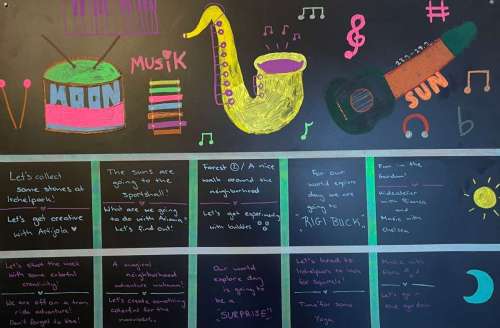 MUSIK
MOON
SUN
Let's collect
some stones at
Irchelpark!
Let's get creative
with Antigla
The suns are
going to the
sportshall!
What are we going
to do with Ariana?
Let's find out!
Forest / A nice
walk around the
neighborhood
Let's get experimenty
with bubbles
For our
world explore
day we are
going to
"RIGI BLICK"
Fun in the
Garden!
Kidscatelier
with Bianca
and
Music with
Chelsea
Let's start the week
with some colorful
creativity!
We are off on a tram
ride adventure!
Don't forget to
A magical
neighborhood
adventure
Let's create something
colorful for the
Our world
explore day
is going to
be a
"SURPRISE"!
Let's head to
Irchelpark to look
for squirrels!
Time for some
Yoga
Music with
Let's go
the garden